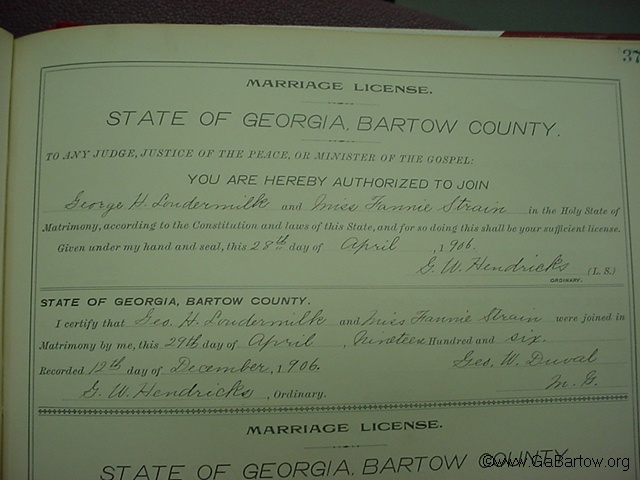 37
MARRIAGE LICENSE.
STATE OF GEORGIA, BARTOW COUNTY.
TO ANY JUDGE, JUSTICE OF THE PEACE, OR MINISTER OF THE GOSPEL:
YOU ARE HEREBY AUTHORIZED TO JOIN
George H. Loudermilk and Miss Fannie Strain in the Holy State of
Matrimony, according to the Constitution and laws of this State, and for so doing this shall be your sufficient license.
Given under my hand and seal, this 28th day of April, 1906.
G. W. Hendricks (L. S.)
ORDINARY.
STATE OF GEORGIA, BARTOW COUNTY.
I certify that Geo. H. Loudermilk and Miss Fannie Strain were joined in
Matrimony by me, this 29th day of April, Nineteen Hundred and six.
Recorded 12th day of December, 1906. Geo. W. Duval
G. W. Hendricks, Ordinary. M. G.
MARRIAGE LICENSE.
STATE OF GEORGIA, BARTOW COUNTY.
©www.GaBartow.org